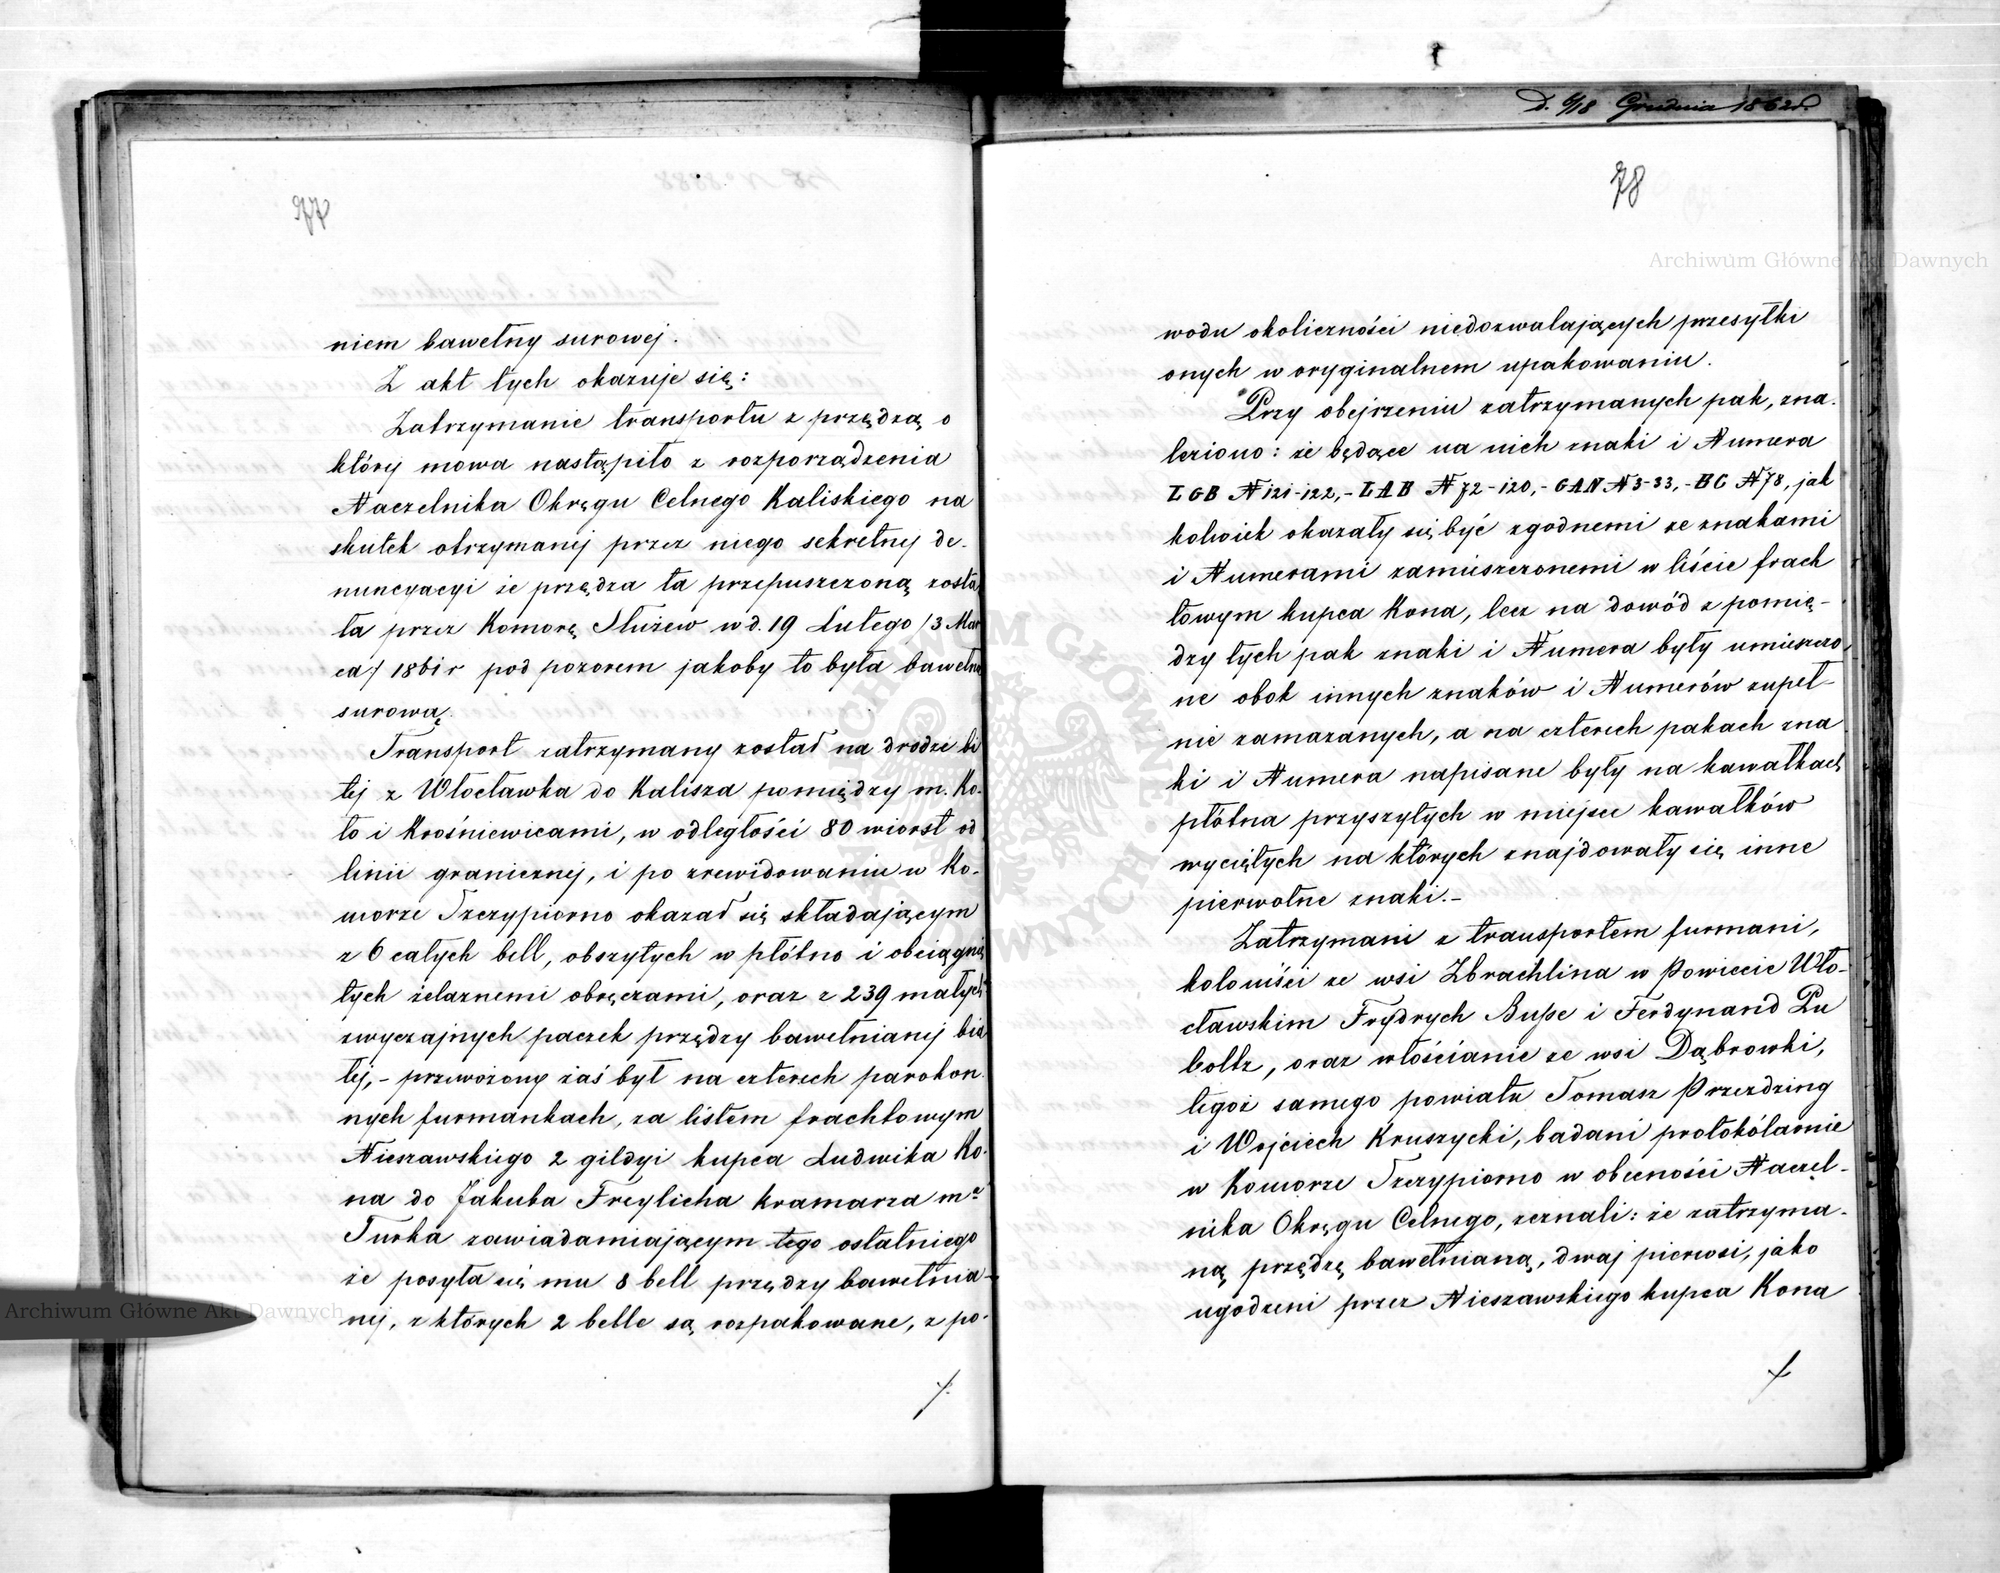 77
niem bawełny surowej.
Z akt tych okazuje się:
Zatrzymanie transportu z przędzą o
któréj mowa nastąpiło z rozporządzenia
Naczelnika Okręgu Celnego Kaliskiego na
skutek otrzymanéj przez niego sekretnéj de-
nuncyacyi że przędza ta przepuszczoną zosta
ła przez Komorę Służew w d. 19 Lutego /3 Mar
ca/ 1861 r pod pozorem jakoby to była bawełna
surową.
Transport zatrzymany został na drodze bi
téj z Włocławka do Kalisza pomiędzy m. Ko-
ło i Krośniewicami, w odległości 80 wiorst od
linii granicznéj, i po zrewidowaniu w Ko-
morze Szczypiorno okazał się składającym
z 6 całych bell, obszytych w płótno i obciągnię
tych żelaznemi obręczami, oraz z 239 małych
zwyczajnych paczek przędzy bawełnianéj bia
łéj,- przewożony zaś był na czterech parokon
nych furmankach, za listem frachtowym
Nieszawskiego 2 gildyi kupca Ludwika Ko-
na do Jakuba Freylicha kramarza mta
Turka zawiadamiającym tego ostatniego
że posyła się mu 8 bell przędzy bawełnia-
néj, z których 2 belle są rozpakowane, z po-
/.
D. 6/18 Grudnia 1862 r.
78
Archiwum Główne Akt Dawnych
wodu okoliczności niedozwalających przesyłki
onych w oryginalnem upakowaniu.
Przy obejrzeniu zatrzymanych pak, zna-
leziono: że będące na nich znaki i Numera
LGB N 121-122,- LAB N 72-120,- GAN N 3-33,- BC N 78, jak
kolwiek okazały się być zgodnemi ze znakami
i Numerami zamieszczonemi w liście frach
towym kupca Kona, lecz na dowód z pomię-
dzy tych pak znaki i Numera były umieszczo
ne obok innych znaków i Numerów zupeł-
nie zamazanych, a na czterech pakach zna
ki i Numera napisane były na kawałkach
płótna przyszytych w miejsce kawałków
wyciętych na których znajdowały się inne
pierwotne znaki.-
Zatrzymani z transportem furmani,
koloniści ze wsi Zbrachlina w Powiecie Wło-
cławskim Frydrych Busse i Ferdynand Pu
boltz, oraz włościanie ze wsi Dąbrowki,
tegoż samego powiatu Tomasz Przezdzing
i Wojciech Kruszycki, badani protokólarnie
w Komorze Szczypiorno w obecności Naczel-
nika Okręgu Celnego, zeznali: że zatrzyma-
ną przędzę bawełnianą, dwaj pierwsi, jako
ugodzeni przez Nieszawskiego kupca Kona
Archiwum Główne Akt Dawnych